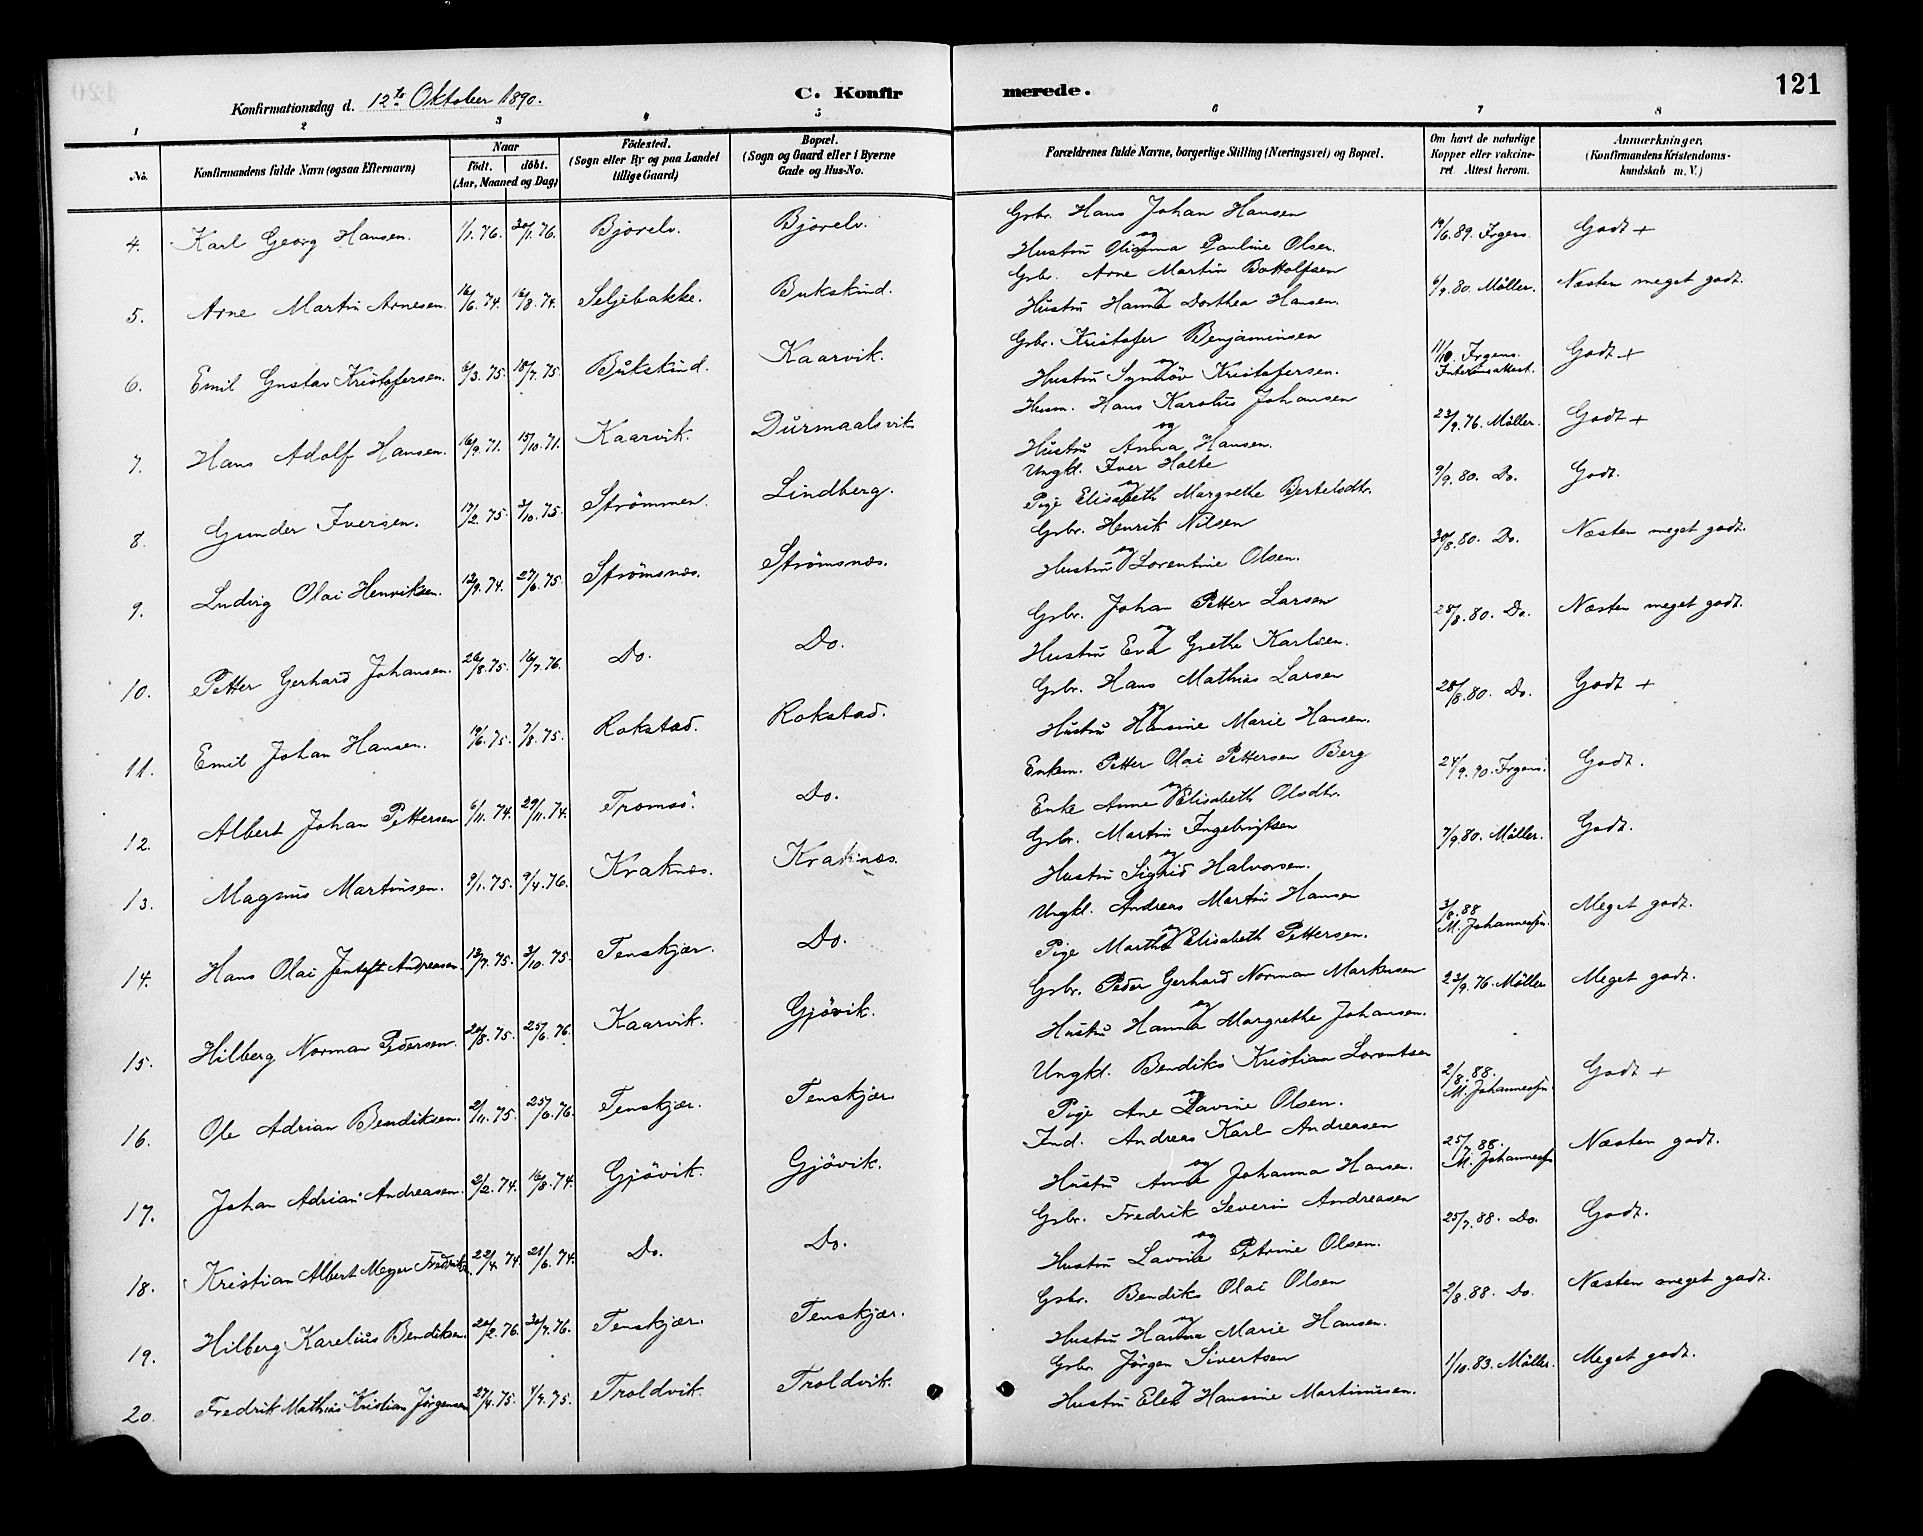 121
Konfirmationsdag d. 12te Oktober 1890.
C. Konfirmerede.
1 2 3 4 5 6 7 8
No. Konfirmandens fulde Navn (ogsaa Efternavn) Naar Födt. döbt. (Aar, Maaned og Dag) Födested. (Sogn eller By og paa Landet tillige Gaard) Bopæl. (Sogn og Gaard eller i Byerne Gade og Hus-No. Forældrenes fulde Navne, borgerlige Stilling (Næringsvei) og Bopæl. Om havt de naturlige Kopper eller vaccineret Attest herom. Anmærkninger. (Konfirmandens Kristendomskundskab m. V.)
4. Karl Georg Hansen. 1/1.76. 30/1.76. Bjorelv. Bjorelv. Gsbr. Hans Johan Hansen og Hustru Olianna Pauline Olsen. 19/6.89. Irgens. Godt +
5. Arne Martin Arnesen. 16/6.74. 16/8.74. Seljebakke. Bukskind. Gsbr. Arne Martin Bottolfsen og Hustru Hanna Dorthea Hansen. 6/9.80. Möller. Næsten meget godt.
6. Emil Gustav Kristofersen. 6/3.75. 18/7.75. Bukskind. Kaarvik. Gsbr. Kristofer Benjaminsen og Hustru Synnöv Kristofersen. 11/10. Irgens. Interimsattest. Godt +
7. Hans Adolf Hansen. 16/9.71. 15/10.71. Kaarvik. Durmaalsvik Husm. Hans Karolus Johansen og Hustru Anna Hansen. 23/9.76. Möller. Godt +
8. Gunder Iversen. 17/2.75. 3/10.75. Strömmen. Lindberg. Ungkl. Iver Holte og Pige Elisabeth Margrethe Bertelsdtr. 9/9.80. Do. Godt.
9. Ludvig Olai Henriksen. 12/9.74. 27/6.75. Strömsnæs. Strömsnæs. Gsbr. Henrik Nilsen og Hustru Lorentine Olsen. 30/8.80. Do. Næsten meget godt.
10. Petter Gerhard Johansen. 26/8.75. 16/7.76. Do. Do. Gsbr. Johan Petter Larsen og Hustru Eva Grethe Karlsen. 28/8.80. Do. Næsten meget godt.
11. Emil Johan Hansen. 19/6.75. 7/8.75. Rokstad. Rokstad. Gsbr. Hans Mathias Larsen og Hustru Hansine Marie Hansen. 28/8.80. Do. Godt +
12. Albert Johan Pettersen 6/11.74. 29/11.74. Tromsö. Do. Enkem. Petter Olai Pettersen Berg og Enke Anne Elisabeth Olsdtr. 24/9.90. Irgens. Godt.
13. Magnus Martinsen. 9/1.75. 9/4.76. Kraknæs. Kraknæs. Gsbr. Martin Ingebrigtsen og Hustru Sigrid Halvorsen. 7/9.80. Möller. Godt.
14. Hans Olai Jentoft Andreasen. 13/7.75. 3/10.75. Tenskjær. Do. Ungkl. Andreas Martin Hansen og Pige Martha Elisabeth Pettersen. 3/8.88 M. Johannessen. Meget godt.
15. Hilberg Norman Pedersen. 20/8.75. 25/6.76. Kaarvik. Gjövik. Gsbr. Peder Gerhard Norman Markusen og Hustru Hanna Margrethe Johansen. 23/9.76. Möller Meget godt.
16. Ole Adrian Bendiksen. 2/11.75. 25/6.76. Tenskjær. Tenskjær. Ungkl. Bendiks Kristian Lorentsen og Pige Ane Lavine Olsen. 2/8.88. M. Johannessen. Godt +
17. Johan Adrian Andreasen. 2/2.74. 16/8.74. Gjövik. Gjövik. Ind. Andreas Karl Andreasen og Hustru Anna Johanna Hansen. 25/7.88. M. Johannessen Næsten godt.
18. Kristian Albert Meyer Fredriks. 22/4.74. 21/6.74. Do. Do. Gsbr. Fredrik Severin Andreasen og Hustru Lavine Petrine Olsen. 25/7.88. Do. Godt.
19. Hilberg Karelius Bendiksen. 20/2.76. 30/7.76. Tenskjær. Tenskjær. Gsbr. Bendiks Olai Olsen og Hustru Hanna Marie Hansen. 2/8.88. Do. Næsten meget godt.
20. Fredrik Mathias Kristian Jörgensen 27/4.75. 1/7.75. Troldvik. Troldvik. Gsbr. Jörgen Sivertsen og Hustru Elen Hansine Martinusen. 1/10.83. Möller. Meget godt.